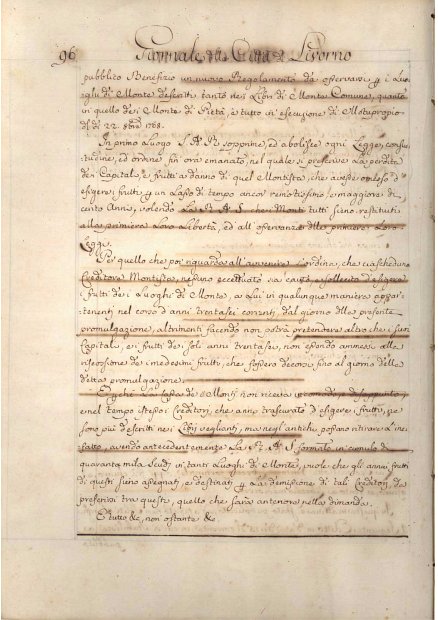 96 Giornale della Città di Livorno
pubblico Benefizio un nuovo Regolamento da osservarsi p i Luo-
ghi di Monte descritti tanto nei Libri di Monte Comune, quanto
in quello dei Monte di Pietà, e tutto in esecuzione di Motuproprio
de dì 22. 1768.
In primo Luogo S. A. R. sopprime, ed abolisce ogni Legge, consue-
tudine, ed ordine fin ora emanato, nel quale si prescrive la perdita
dei Capitali, e frutti a danno di quel Montista, che avesse omesso d'
esigere i frutti p un Lasso di tempo ancor remotissimo, e maggiore di
cento Anni, volendo La R. A. S. che i Monti tutti sieno restituiti
alla primiera Loro Libertà, ed all'osservanza delle primiere Loro
Legge.
Per quello che poi riguarda all'avvenire s'ordina, che ciascheduno
Creditore Montista, nessuno eccettuato sia cauto, e sollecito d'esigere
i frutti dei Luoghi di Monte, a Lui in qualunque maniera appar-
tenenti nel corso d'anni trentasei correnti dal giorno della presente
promulgazione, altrimenti facendo non potrà pretendere altro che i suoi
Capitali, e i frutti dei soli anni trentasei, non essendo ammessi alla
riscossione de i medesimi frutti, che fossero decorsi fino al giorno della
detta promulgazione.
E perchè La Cassa de i Monti non riceva incomodo, e disappunto,
e nel tempo stesso i Creditori, che anno trascurato d'esigere i frutti, se
sono più descritti nei Libri veglianti, ma negli antichi, possano ritirare L'in-
fatto, avendo antecedentemente La R. A. S. formato un cumulo di
quaranta mila Scudi in tanti Luoghi di Monte, vuole che gli annui frutti
di questi sieno assegnati, e destinati p La dimissione di tali Creditori, da
preferirsi tra questi, quello che sarà anteriore nella dimanda.
E tutto &c, non ostante &c.